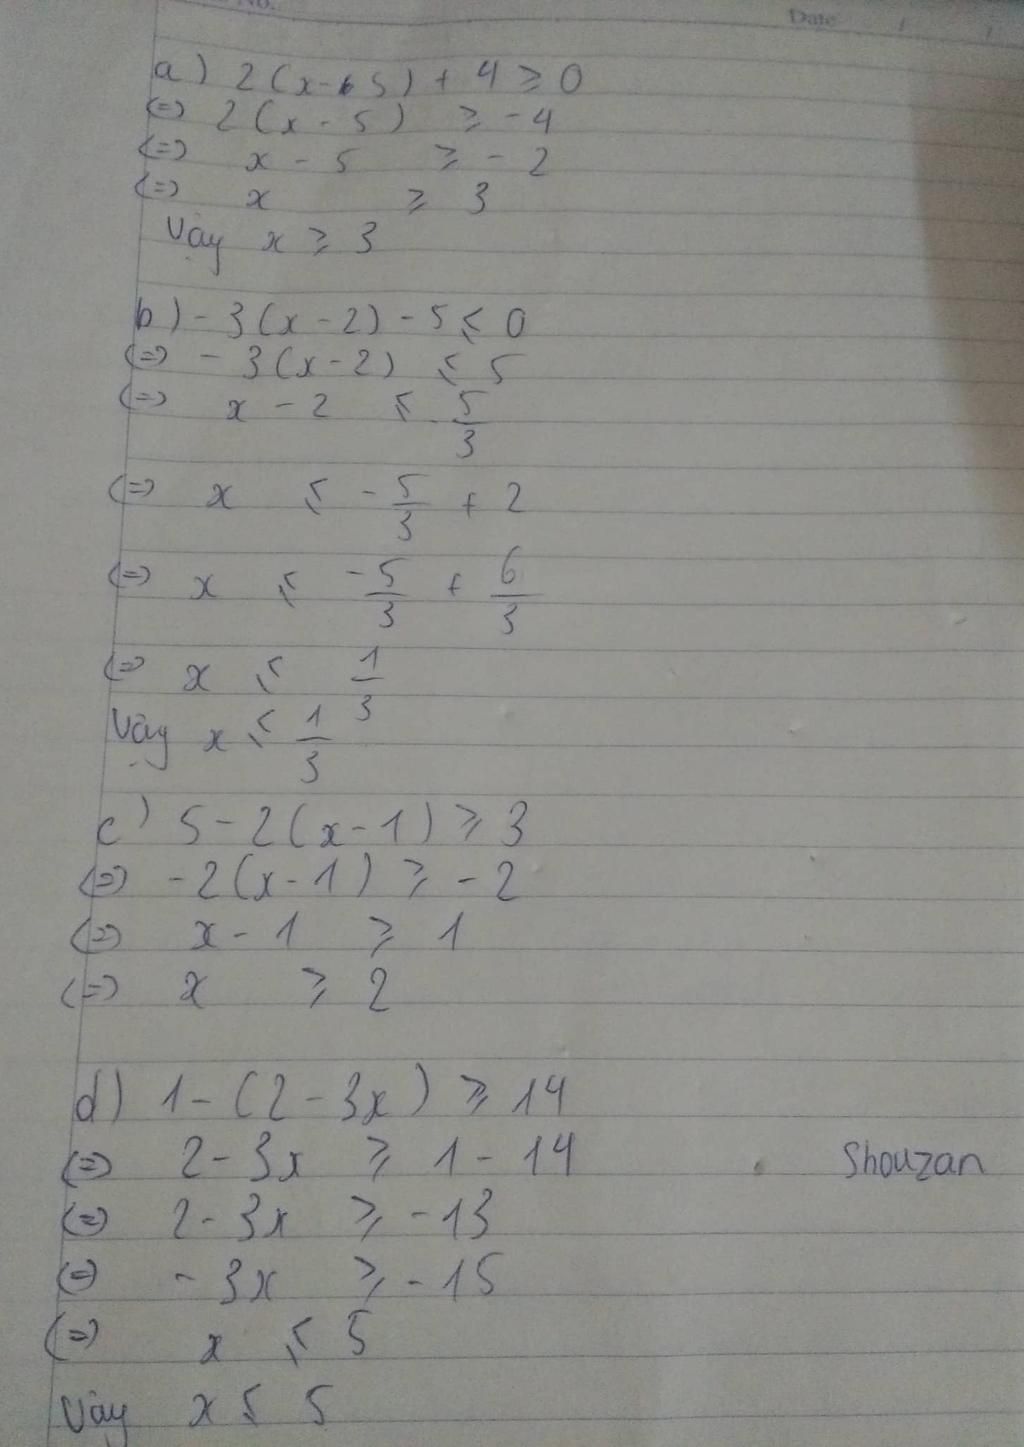 No.
Date / /
a) 2(x-5) + 4 ⩾ 0
(=) 2(x - 5) ⩾ -4
(=) x - 5 ⩾ - 2
(=) x ⩾ 3
Vậy x ⩾ 3
b) - 3(x - 2) - 5 ⩽ 0
(=) - 3(x - 2) ⩽ 5
(=) x - 2 ⩽ 5/3
(=) x ⩽ - 5/3 + 2
(=) x ⩽ -5/3 + 6/3
(=) x ⩽ 1/3
Vậy x ⩽ 1/3
c) 5 - 2(x - 1) ⩾ 3
(=) -2(x - 1) ⩾ -2
(=) x - 1 ⩾ 1
(=) x ⩾ 2
d) 1 - (2 - 3x) ⩾ 14
(=) 2 - 3x ⩾ 1 - 14
Shouzan
(=) 2 - 3x ⩾ -13
(=) - 3x ⩾ -15
(=) x ⩽ 5
Vậy x ⩽ 5